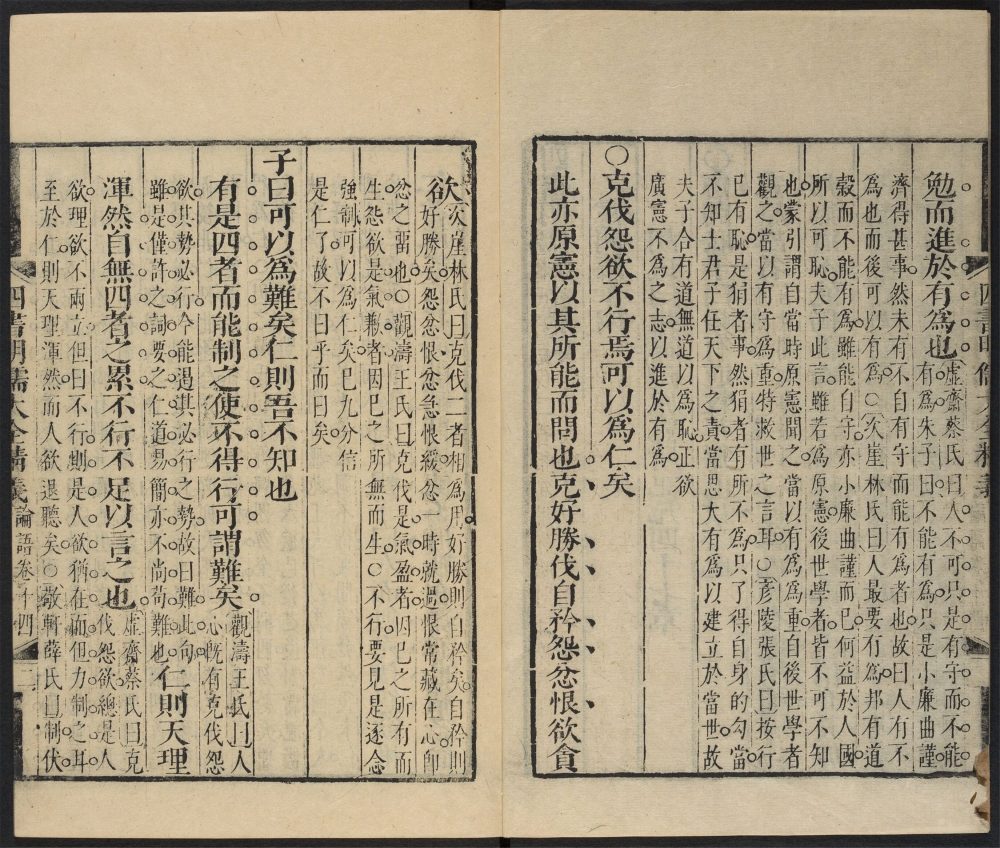 勉而進於有爲也
虛齋蔡氏曰人不可只是有守而不能
有爲朱子曰不能有爲只是小廉曲謹
濟得甚事然未有不自有守而能有爲者也故曰人有不
爲也而後可以有爲○次崖林氏曰人最要有爲邦有道
穀而不能有爲雖能自守亦小廉曲謹而已何益於人國
所以可恥夫子此言雖若爲原憲後世學者皆不可不知
也蒙引謂自當時原憲聞之當以有爲爲重自後世學者
觀之當以有守爲重特救世之言耳○彥陵張氏曰按行
已有恥是狷者事然狷者有所不爲只了得自身的勾當
不知士君子任天下之責當思大有爲以建立於當世故
夫子合有道無道以爲恥正欲
廣憲不爲之志以進於有爲
○克伐怨欲不行焉可以爲仁矣
此亦原憲以其所能而問也克好勝伐自矜怨忿恨欲貪
欲
次崖林氏曰克伐二者相爲用好勝則自矜矣自矜則
好勝矣怨忿恨忿急恨緩忿一時就過恨常藏在心卽
忿之畱也○觀濤王氏曰克伐是氣盈者因已之所有而
生怨欲是氣歉者因已之所無而生○不行要見是逐念
強制可以爲仁矣已九分信
是仁了故不曰乎而曰矣
子曰可以爲難矣仁則吾不知也
有是四者而能制之使不得行可謂難矣
觀濤王氏曰人
心既有克伐怨
欲其勢必行今能遏其必行之勢故曰難此句
雖是僅許之詞要之仁道易簡亦不尚苟難也
仁則天理
渾然自無四者之累不行不足以言之也
虛齋蔡氏曰克
伐怨欲總是人
欲理欲不兩立但曰不行則是人欲猶在而但力制之耳
至於仁則天理渾然而人欲退聽矣○敬軒薛氏曰制伏
四書明儒大全精義 論語卷十四 二